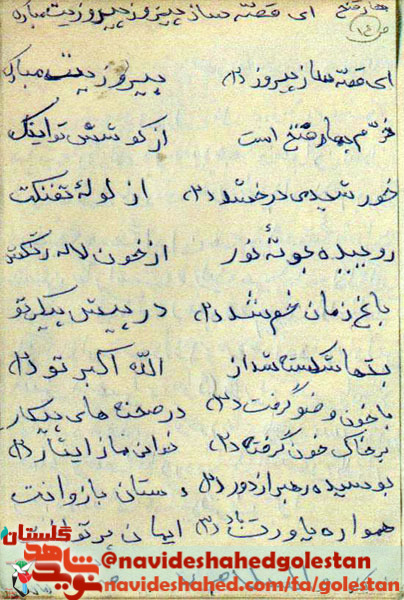 بهار فتح ای قصه ساز پیروز پیروزیت مبارک
ص ۱۴۰
ای قصه ساز پیروز (۲) پیروزیت مبارک
خرّم بهار فتح است از کوشش تو اینک
خورشیدی درخشد (۲) از لولهٔ تفنگت
روییده بوتهٔ نور از خون لاله رنگت
باغ زمان خم شد (۲) در پیش پیکر تو
بتها شکسته شد از الله اکبر تو (۲)
با خون وضو گرفت (۲) در صحنه های پیکار
بر خاک خون گرفته (۲) خواندی نماز ایثار (۲)
بوسیده رهبر از دور (۲) دستان بازوانت
همواره یاورت باد (۲) ایمان پر
نوید شاهد گلستان
@navideshahedgolestan
navideshahed.com/fa/golestan